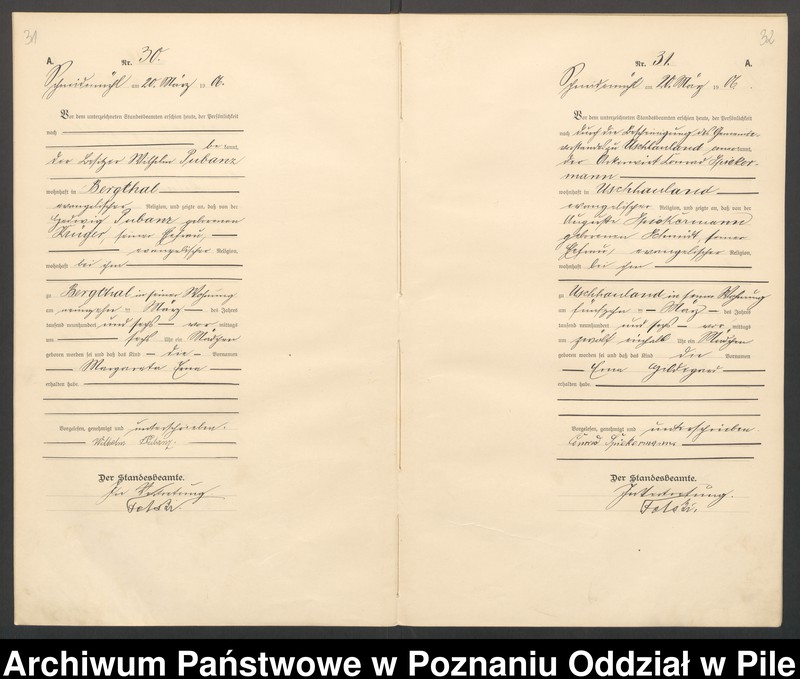 31
A.
Nr. 30.
Schneidemühl am 20. März 1906.
Vor dem unterzeichneten Standesbeamten erschien heute, der Persönlichkeit
nach
be kannt,
der Besitzer Wilhelm Pubanz
wohnhaft in Bergthal
evangelischer Religion, und zeigte an, daß von der
Hedwig Pubanz geborenen
Krüger, seiner Ehefrau,
evangelischer Religion,
wohnhaft bei ihm
zu Bergthal in seiner Wohnung
am neunzehn ten März des Jahres
tausend neunhundert und sechs vor mittags
um sechs Uhr ein Mädchen
geboren worden sei und daß das Kind die Vornamen
Margareta Erna
erhalten habe.
Vorgelesen, genehmigt und unterschrieben.
Wilhelm Pubanz.
Der Standesbeamte.
In Vertretung
32
Nr. 31.
A.
Schneidemühl am 20. März 1906.
Vor dem unterzeichneten Standesbeamten erschien heute, der Persönlichkeit
nach durch die Bescheinigung des Gemeinde-
vorstandes zu Uschhauland anerkannt,
der Ackerwirt Konrad Spicker-
mann
wohnhaft in Uschhauland
evangelischer Religion, und zeigte an, daß von der
Auguste Spickermann
geborenen Schmidt, seiner
Ehefrau, evangelischer Religion,
wohnhaft bei ihm
zu Uschhauland in seiner Wohnung
am fünfzehn ten März des Jahres
tausend neunhundert und sechs vor mittags
um zwölf einhalb Uhr ein Mädchen
geboren worden sei und daß das Kind die Vornamen
Erna Hildegard
erhalten habe.
Vorgelesen, genehmigt und unterschrieben
Conrad Spickermann
Der Standesbeamte.
In Vertretung.
Archiwum Państwowe w Poznaniu Oddział w Pile